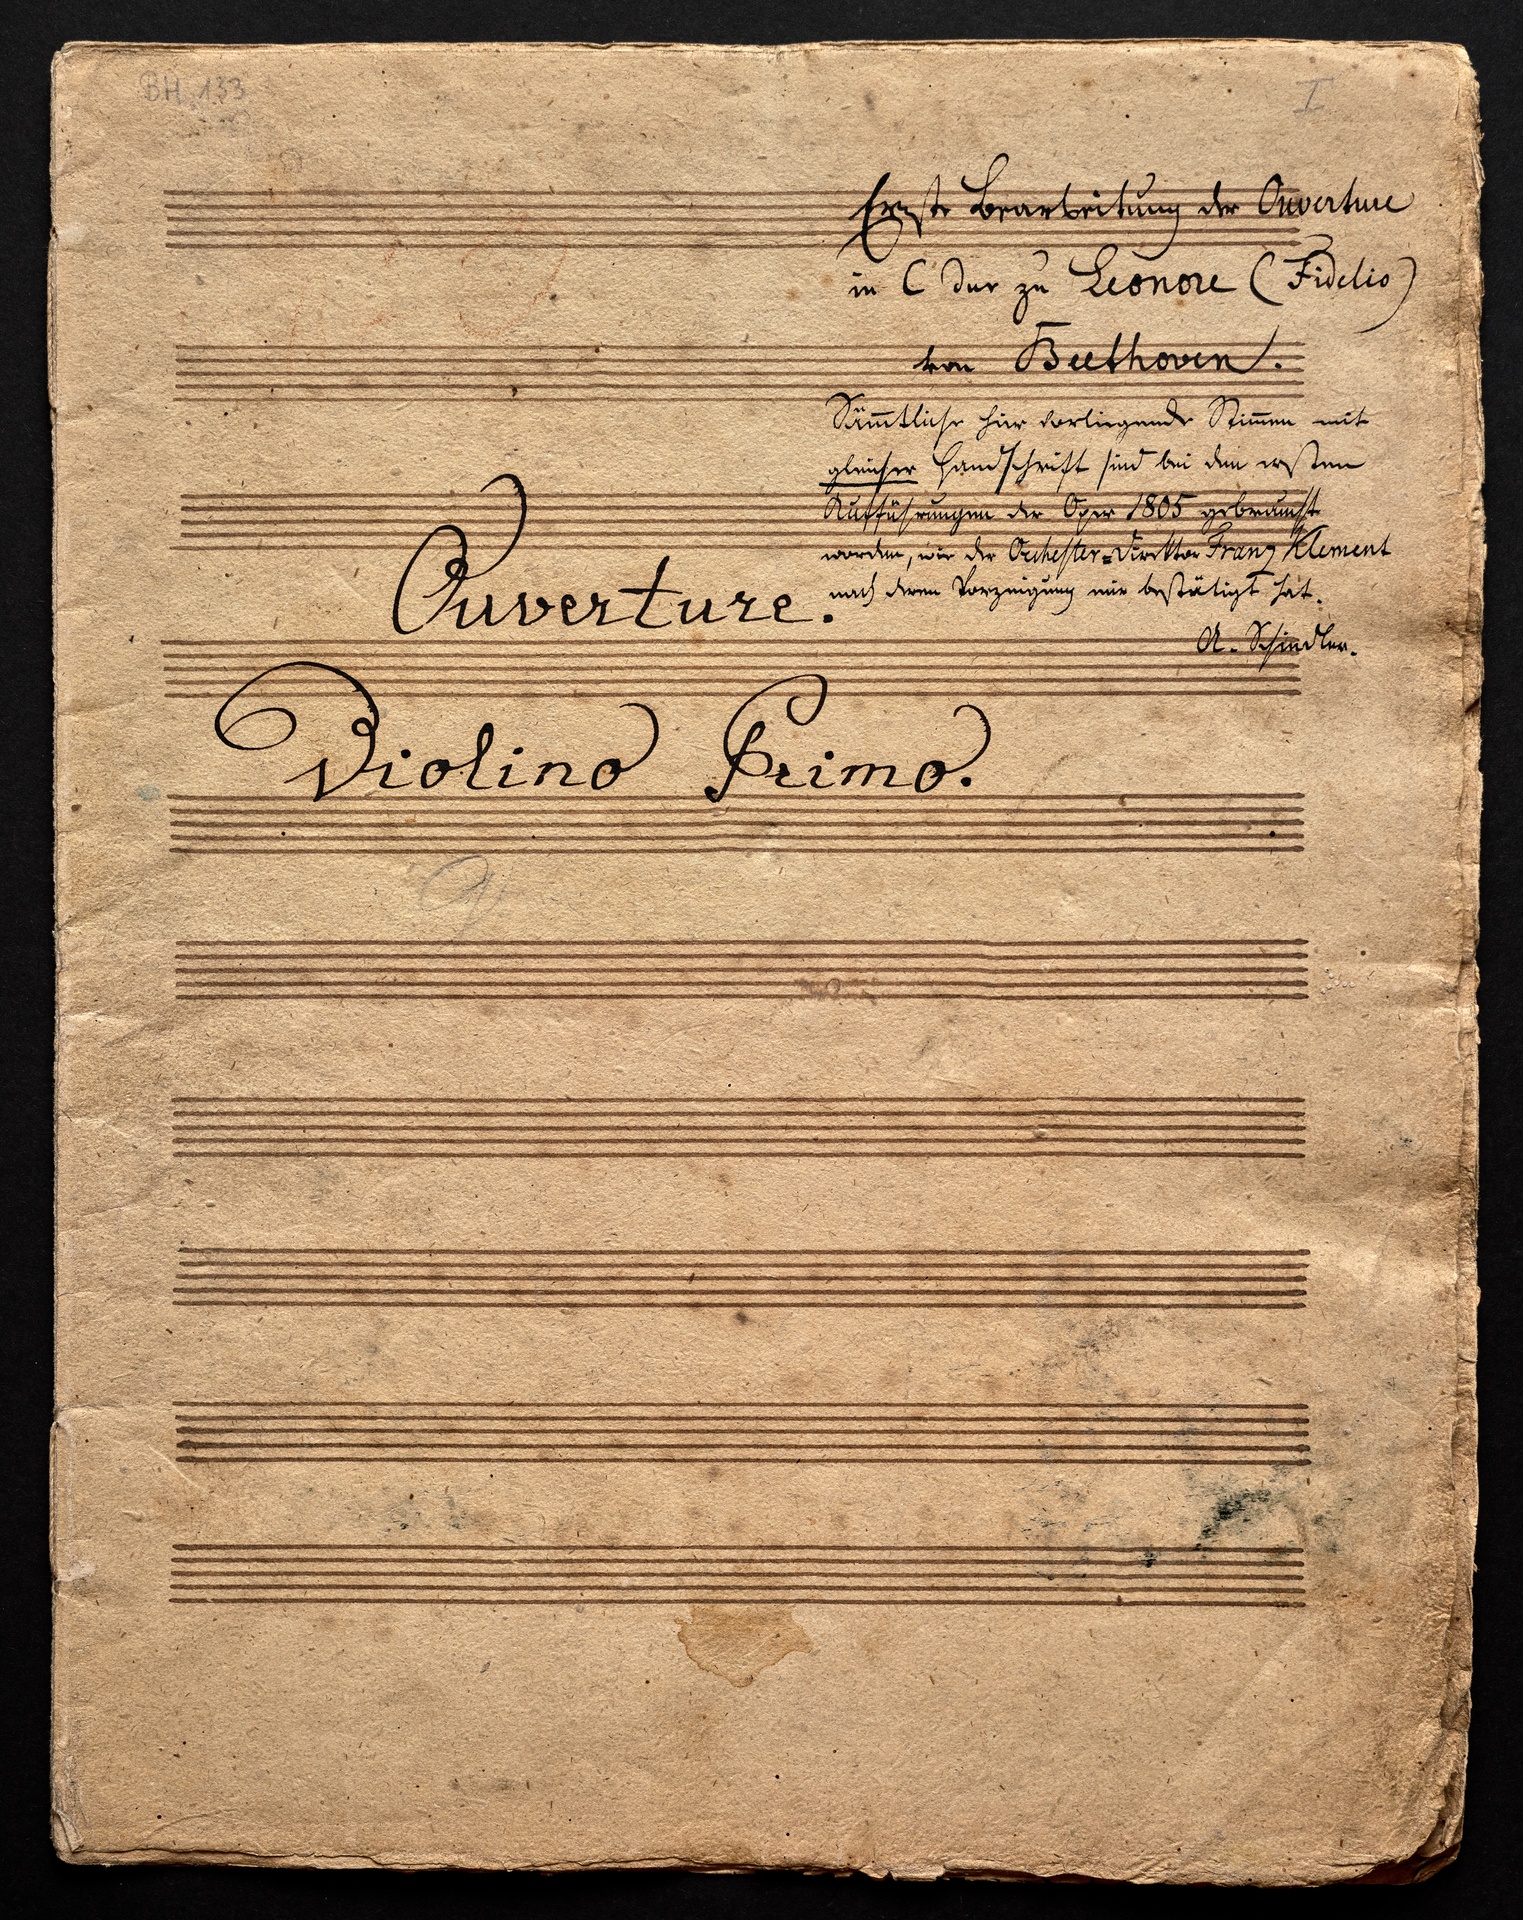 BH. 133
I
Erste Bearbeitung der Ouverture
in C dur zu Leonore (Fidelio)
von Beethoven.
Sämtliche hier vorliegende Stimmen mit
gleicher Handschrift sind bei den ersten
Aufführungen der Oper 1805 gebraucht
worden, wie der Orchester=Direktor Franz Klement
nach deren Vorzeigung mir bestätigt hat.
A. Schindler.
Ouverture.
Violino Primo.